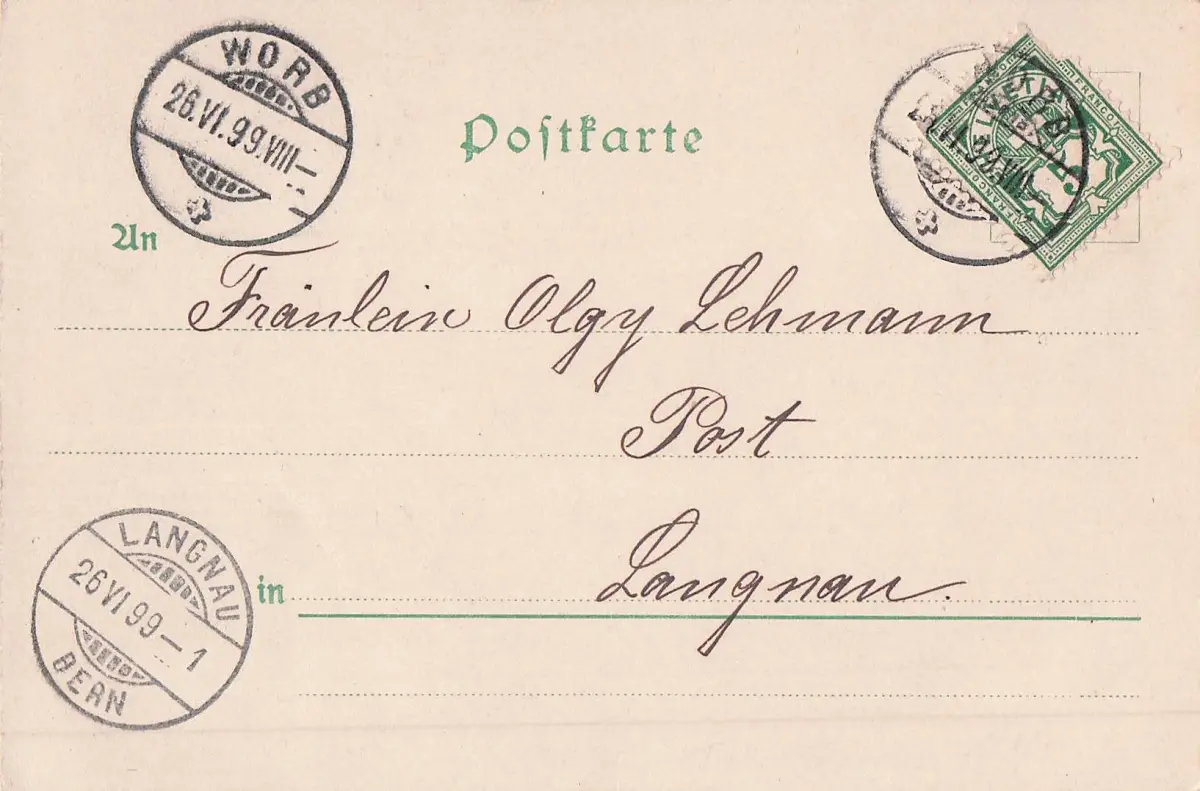 WORB
26.VI.99.VIII—
Postkarte
FRANCO
5
An
Fräulein Olgy Lehmann
Post
in Langnau.
LANGNAU
26 VI 99—1
BERN